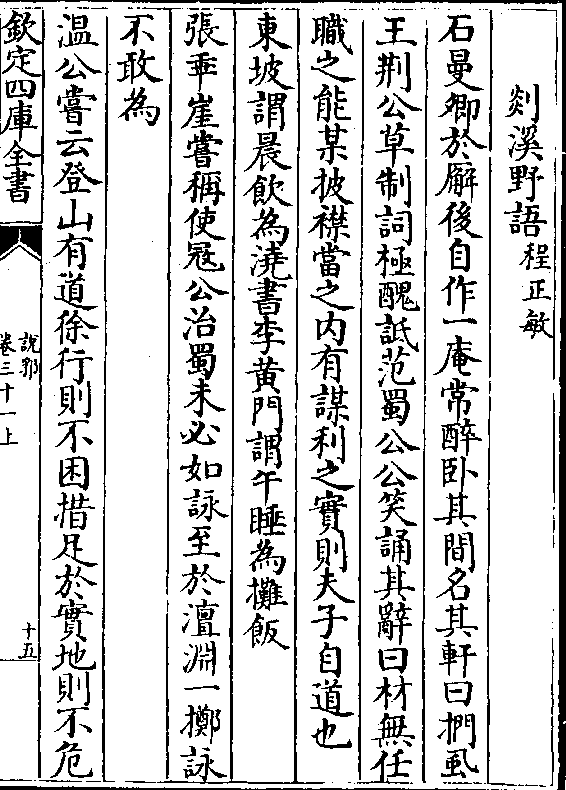 剡溪野語程正敏
石曼卿於廨後自作一庵常醉卧其間名其軒曰捫虱
王荆公草制詞極醜詆范蜀公公笑誦其辭曰材無任
職之能某披襟當之内有謀利之實則夫子自道也
東坡謂晨飲為澆書李黄門謂午睡為攤飯
張乖崖嘗稱使冦公治蜀未必如詠至於澶淵一擲詠
不敢為
温公嘗云登山有道徐行則不困措足於實地則不危
欽定四庫全書
説郛
卷三十一上
十五